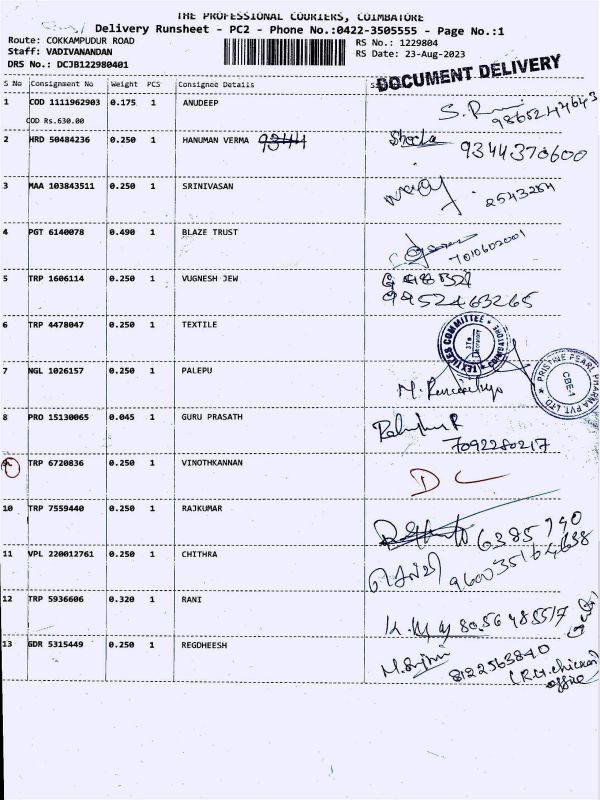 THE PROFESSIONAL COURIERS, COIMBATORE
Delivery Runsheet - PC2 - Phone No.:0422-3505555 - Page No.:1
Route: COKKAMPUDUR ROAD
RS No.: 1229804
Staff: VADIVANANDAN
RS Date: 23-Aug-2023
DRS No.: DCJB122980401
DOCUMENT DELIVERY
S No Consignment No Weight PCS Consignee Details
1 COD 1111962903 0.175 1 ANUDEEP
COD Rs.630.00
2 HRD 50484236 0.250 1 HANUMAN VERMA 9344
9344370600
3 MAA 103843511 0.250 1 SRINIVASAN
2543264
4 PGT 6140078 0.490 1 BLAZE TRUST
7010602001
5 TRP 1606114 0.250 1 VUGNESH JEW
9952463265
6 TRP 4478047 0.250 1 TEXTILE
TEXTILES COMMITTEE
COIMBATORE
7 NGL 1026157 0.250 1 PALEPU
PRISTINE PEARL PHARMA PVT. LTD
CBE-1
8 PRO 15130065 0.045 1 GURU PRASATH
7092280217
9 TRP 6720836 0.250 1 VINOTHKANNAN
DC
10 TRP 7559440 0.250 1 RAJKUMAR
11 VPL 220012761 0.250 1 CHITHRA
12 TRP 5936606 0.320 1 RANI
8056485517
13 GDR 5315449 0.250 1 REGDHEESH
8122563840
office